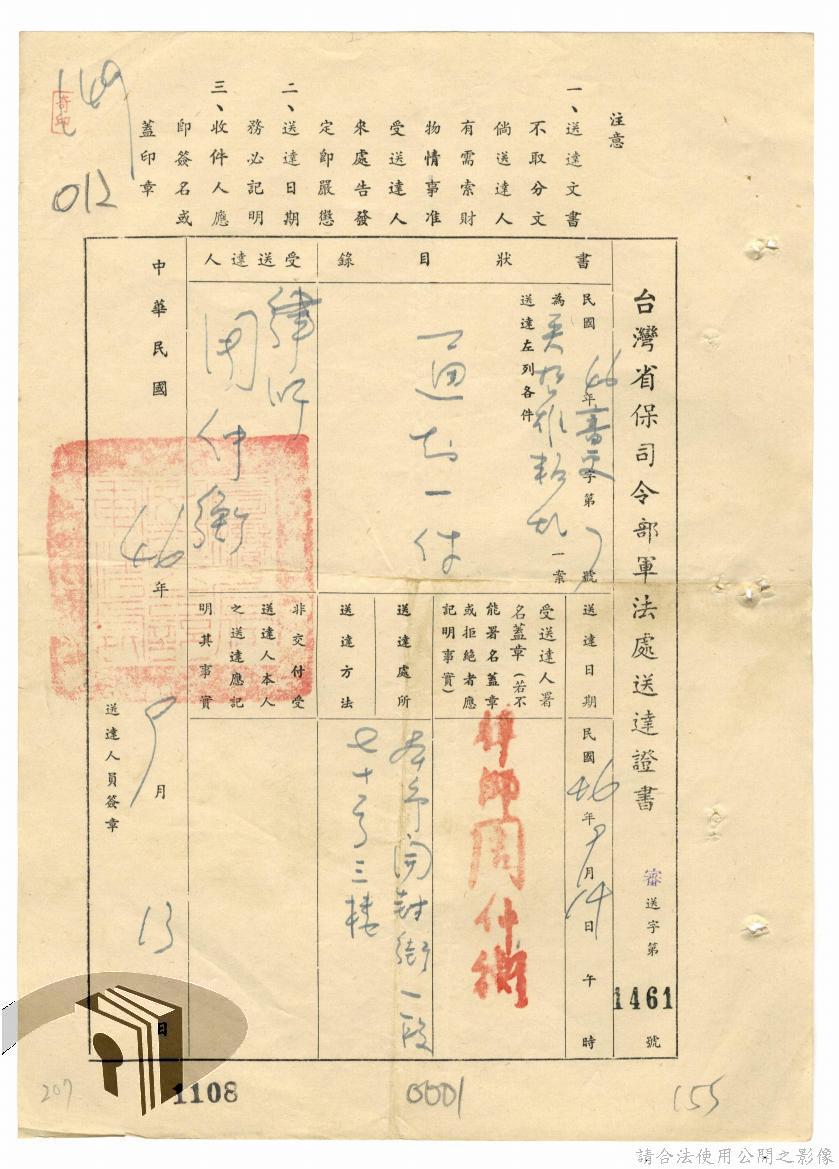 注意
一、送達文書
不取分文
倘送達人
有需索財
物情事准
受送達人
來處告發
定即嚴懲
二、送達日期
務必記明
三、收件人應
即簽名或
蓋印章
149
012
台灣省保司令部軍法處送達證書
審送字第
1461
號
書狀目錄
民國46年審更字第7號
為
一案
送達左列各件
通知一件
受送達人
律師
周仲衡
送達日期
民國46年9月14日午時
受送達人署
名蓋章(若不
能署名蓋章
或拒絕者應
記明事實)
律師周仲衡
送達處所
本市開封街一段
七十号三楼
送達方法
非交付受
送達人本人
之送達應記
明其事實
中華民國46年9月13日
送達人員簽章
207
1108
0001
155
請合法使用公開之影像